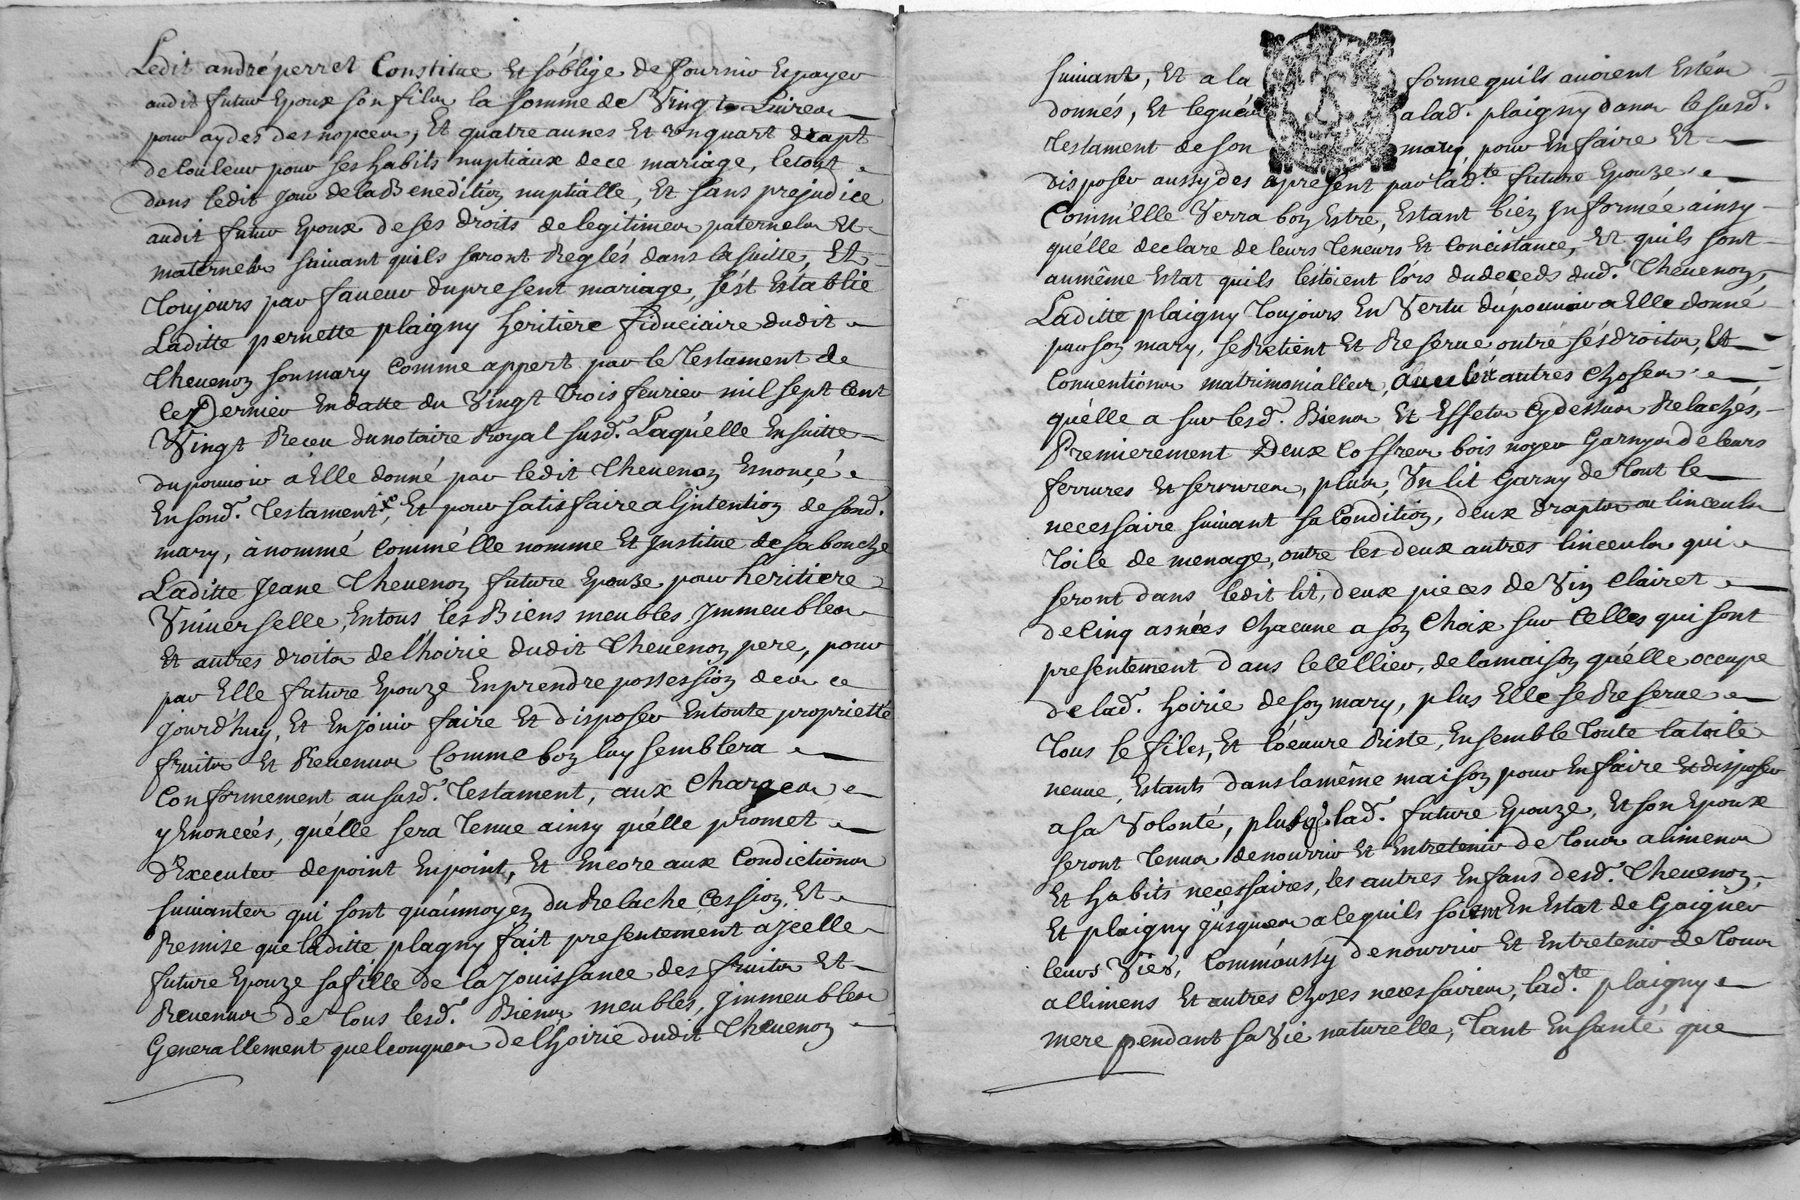 Ledit andré perret Constitue Et s'oblige de fournir Et payer
audit futur Epoux son fils la somme de Vingt Livres
pour aydes des nopces, Et quatre aunes Et un quart drapt
de couleur pour ses habits nuptiaux de ce mariage, le tout
dans ledit jour de la Benedition nuptialle, Et sans prejudice
audit futur Epoux de ses droits de legitimes paternels Et
maternels suivant quils seront Reglés dans la suitte, Et
Toujours par faveur du present mariage, s'ést Establie
Laditte pernette plaigny heritière fiduciaire dudit
Thevenon son mary comme appert par le Testament de
ce Dernier En datte du Vingt Trois fevrier mil sept Cent
Vingt Receu du notaire Royal susd. Laquélle En suitte
du pouvoir à Elle donné par ledit Thevenon Ennonçé
En sond. Testament, Et pour satisfaire a l'jntention de sond.
mary, à nommé comm'élle nomme Et jnstitue de sa bouche
Laditte Jeane Thevenon future Epouze pour heritiere
Vniverselle, En tous les Biens meubles, jmmeubles
Et autres droits de l'hoirie dudit Thevenon pere, pour
par Elle future Epouze En prendre possession des ce
jourd'huy, Et En jouir faire Et disposer En toute propriette
fruits Et Revenus Comme bon luy semblera
Conformement au susd. Testament, aux Charges
y Enoncées, qu'élle sera Tenue ainsy qu'élle promet
d'Executer de point En point, Et Encore aux Condictions
suivantes qui sont qu'aúmoyen du Relache, cession, Et
Remise que laditte plagny fait presentement a jcelle
future Epouze sa fille de la jouissance des fruits Et
Revenus de Tous lesd. Biens meubles, jmmeubles
Generallement quelconques de l'hoirie dudit Thevenon
suivant, Et a la forme quils avoient Estés
donnés, Et legués a lad. plaigny dans le susd.
Testament de son mary, pour En faire Et
disposer aussy des apresent par lad.te future Epouze
Comm'Elle Verra bon Estre, Estant bien jnformée ainsy
qu'élle declare de leurs Teneurs Et Concistance, Et quils sont
au même Estat quils l'éstoient lórs du deceds dud. Thevenon,
Laditte plaigny Toujours En Vertu du pouvoir a Elle donné
par son mary, se Retient Et Reserve outre sés droits, Et
Conventions matrimonialles, autres choses
qu'élle a sur lesd. Biens Et Effets cy dessus Relachés,
Premierement Deux Coffres bois noyer Garnys de leurs
ferrures Et serrures, plus, Vn lit Garny de Tout le
necessaire suivant sa Condition, deux drapts ou linceuls
Toile de menage, outre les deux autres linceuls qui
seront dans ledit lit, deux pieces de Vin Clairet
de Cinq asnées Chacune a son Choix sur Celles qui sont
presentement dans le cellier, de la maison qu'élle occupe
de lad. hoirie de son mary, plus Elle se Reserve
Tous le filés, Et l'oeuvre Riste, En semble Toute la toile
neuve, Estants dans la même maison pour En faire Et disposer
a sa Volonté, plus lad. future Epouze, Et son Epoux
seront Tenus de nourrir Et Entretenir de Tous alimens
Et habits necessaires, les autres Enfans desd. Thevenon,
Et plaigny jusques a ce quils soient En Estat de Gaigner
leurs Vies, Comm'aussy de nourrir Et Entretenir de Tous
allimens Et autres choses necessaires, lad.te plaigny
mere pendant sa Vie naturelle, Tant En santé que